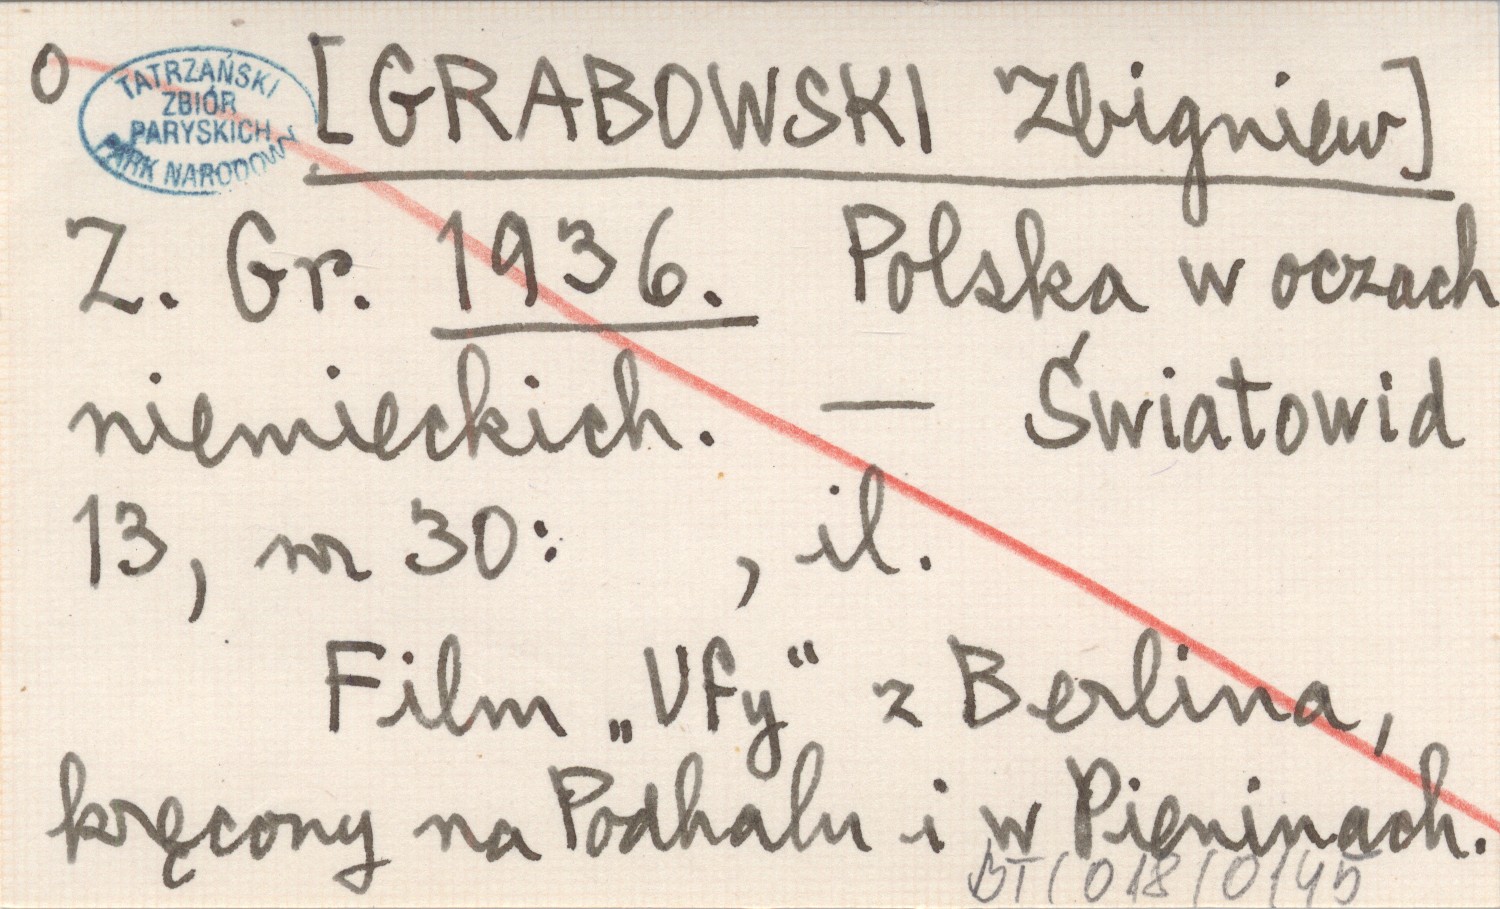 O
TATRZAŃSKI
ZBIÓR
PARYSKICH
PARK NARODOWY
[GRABOWSKI Zbigniew]
Z. Gr. 1936. Polska w oczach
niemieckich. — Światowid
13, nr 30: , il.
Film „Ufy" z Berlina,
kręcony na Podhalu i w Pieninach.
BT/018/0/45